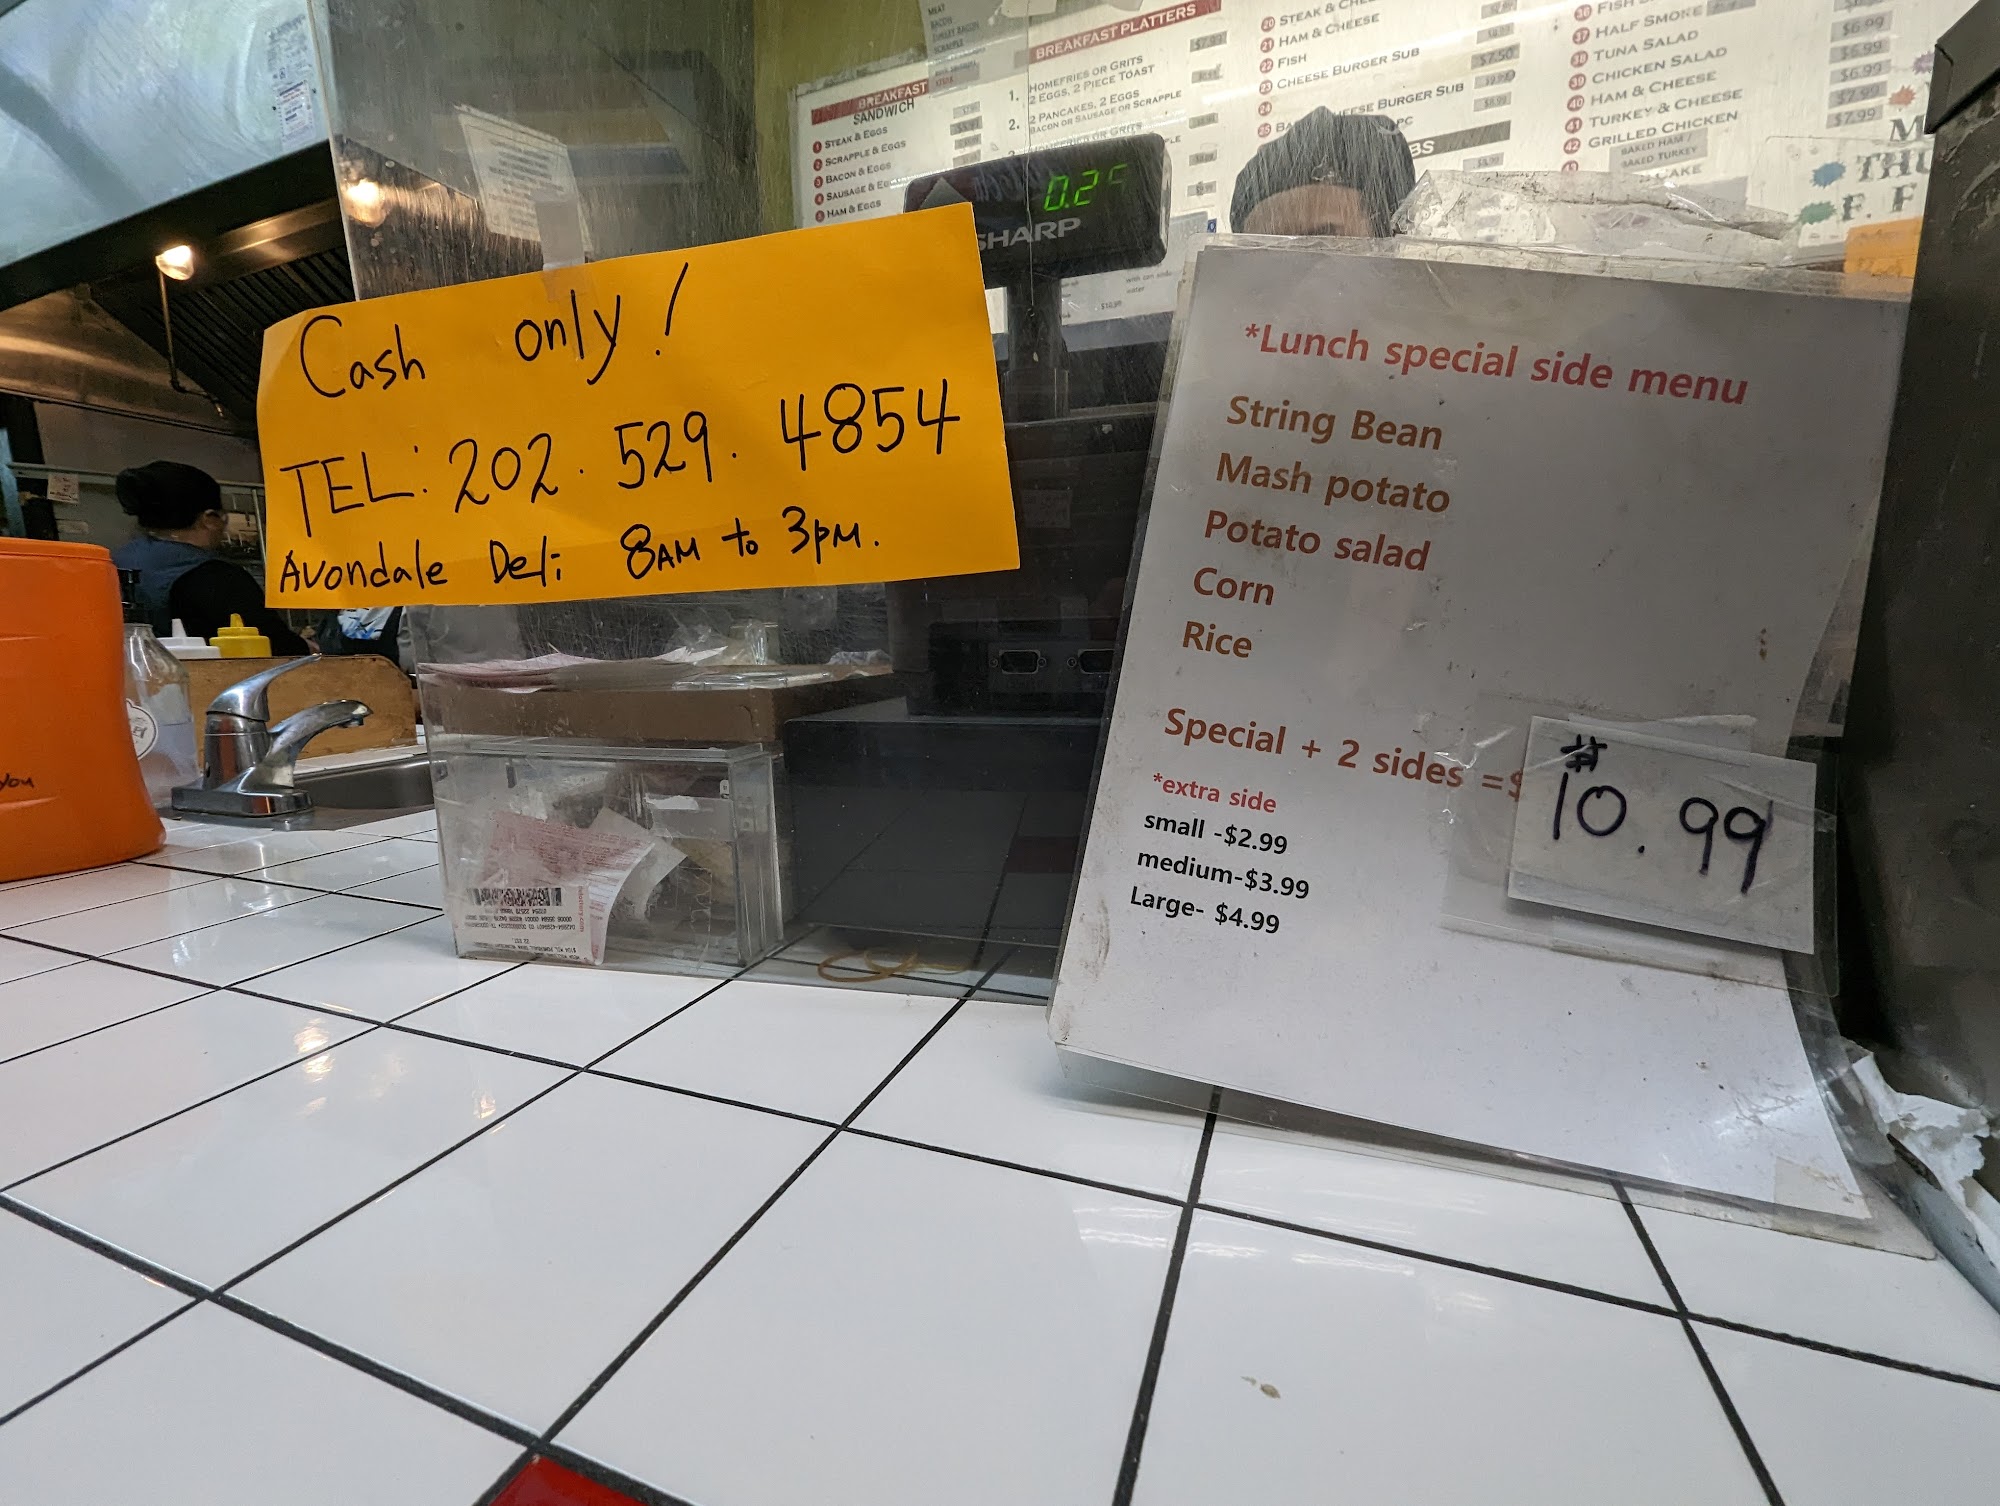 Cash only!
TEL: 202.529.4854
Avondale Deli: 8AM to 3PM.
*Lunch special side menu
String Bean
Mash potato
Potato salad
Corn
Rice
Special + 2 sides =$
#
10.99
*extra side
small -$2.99
medium-$3.99
Large- $4.99
SHARP
0.2
you
BREAKFAST
SANDWICH
1 STEAK & EGGS
2 SCRAPPLE & EGGS
3 BACON & EGGS
4 SAUSAGE &
HAM & EGGS
BREAKFAST PLATTERS
1. HOMEFRIES OR GRITS
2 EGGS, 2 PIECE TOAST
2. 2 PANCAKES, 2 EGGS
BACON OR SAUSAGE OR SCRAPPLE
20 STEAK &
21 HAM & CHEESE
22 FISH
23 CHEESE BURGER SUB
24
25
CHEESE BURGER SUB
$7.50
36 FISH
37 HALF SMOKE
38 TUNA SALAD
39 CHICKEN SALAD
40 HAM & CHEESE
41 TURKEY & CHEESE
42 GRILLED CHICKEN
43
BAKED HAM /
BAKED TURKEY
CAKE
$6.99
$6.99
$6.99
$7.99
$7.99